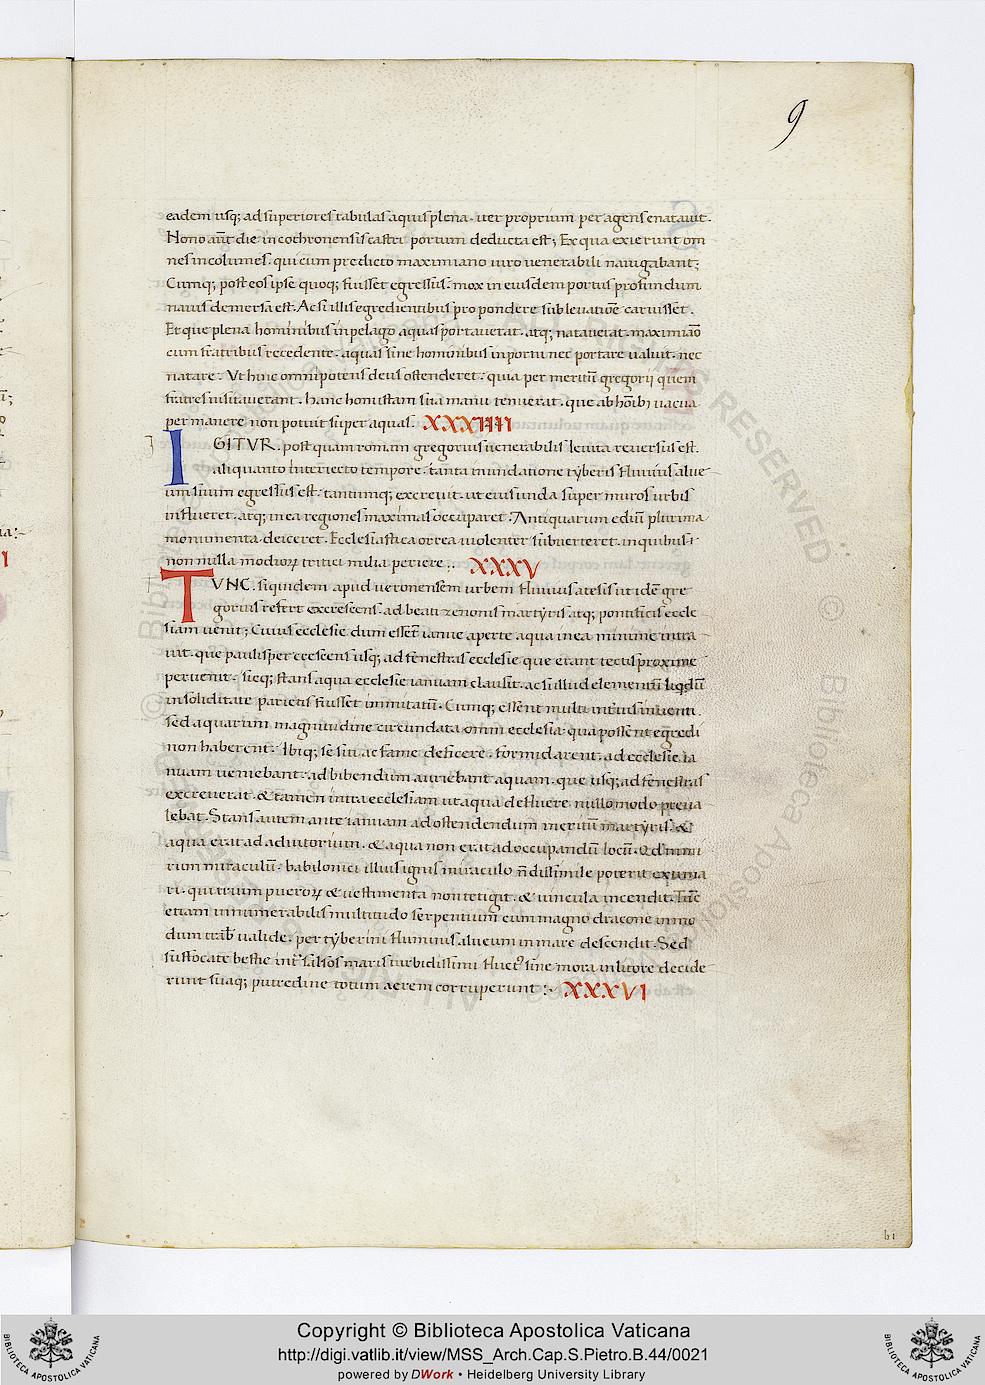 9
eadem usq; ad superiores tabulas aquis plena. iter proprium peragens enatauit.
Nono aūt die in cothronensis castri portum deducta est; Ex qua exierunt om
nes incolumes. qui cum predicto maximiano uiro uenerabili nauigabant;
Cumq; post eos ipse quoq; fuisset egressus. mox in eiusdem portus profundum
nauis demersa est. Ac si illis egredientibus pro pondere subleuatiōe caruisset.
Et que plena hominibus in pelago aquas portauerat. atq; natauerat. maximiāo
cum fratribus recedente. aquas sine hominibus in portu nec portare ualuit. nec
natare. Ut hinc omnipotens deus ostenderet. quia per meritū gregorii quem
fratres uisitauerant. hanc honustam sua manu tenuerat. que ab hōibꝫ uacua
permanere non potuit super aquas. XXXIIII
IGITUR. post quam romam gregorius uenerabilis leuita reuersus est.
aliquanto interiecto tempore. tanta inundatione tyberis fluuius alue
um suum egressus est. tantumq; excreuit. ut eius unda super muros urbis
influeret. atq; in ea regiones maximas occuparet. Antiquarum ediū plurima
monumenta deiceret. Ecclesiastica orrea uiolenter subuerteret. in quibus
non nulla modioꝝ tritici milia periere. XXXV
TUNC. siquidem apud ueronensem urbem fluuius atesis ut idē gre
gorius refert excrescens. ad beati zenonis martyris. atq; pontificis eccle
siam uenit; Cuius ecclesie dum essēt ianue aperte aqua in ea minime intra
uit. que paulisper crescens usq; ad fenestras ecclesie que erant tectis proxime
peruenit. sicq; stans aqua ecclesie ianuam clausit. ac si illud elementū liqdū
in soliditate parietis fuisset immutatū. Cumq; essent multi intus inuenti.
sed aquarum magnitudine circundata omni ecclesia qua possent egredi
non haberent. Ibiq; se siti ac fame deficere. formidarent. ad ecclesie ia
nuam ueniebant. ad bibendum auriebant aquam. que usq; ad fenestras
excreuerat. & tamen intra ecclesiam ut aqua defluere nullo modo preua
lebat. Stans autem ante ianuam ad ostendendum meritū martyris. &
aqua erat ad adiutorium. & aqua non erat ad occupandū locū. Qd mi
rum miraculū. babilonici illius ignis miraculo ñ dissimile poterit extima
ri. qui trium pueroꝝ & uestimenta non tetigit. & uincula incendit. Tūc
etiam innumerabilis multitudo serpentium cum magno dracone in mo
dum trab' ualide. per tyberini fluminis alueum in mare descendit. Sed
suffocate bestie int' salsos maris turbidissimi fluct' sine mora in litore decide
runt suaq; putredine totum aerem corruperunt. XXXVI
b 1
© Biblioteca Apostolica Vaticana ALL RIGHTS RESERVED
Copyright © Biblioteca Apostolica Vaticana
http://digi.vatlib.it/view/MSS_Arch.Cap.S.Pietro.B.44/0021
powered by DWork • Heidelberg University Library
BIBLIOTECA APOSTOLICA VATICANA
BIBLIOTECA APOSTOLICA VATICANA